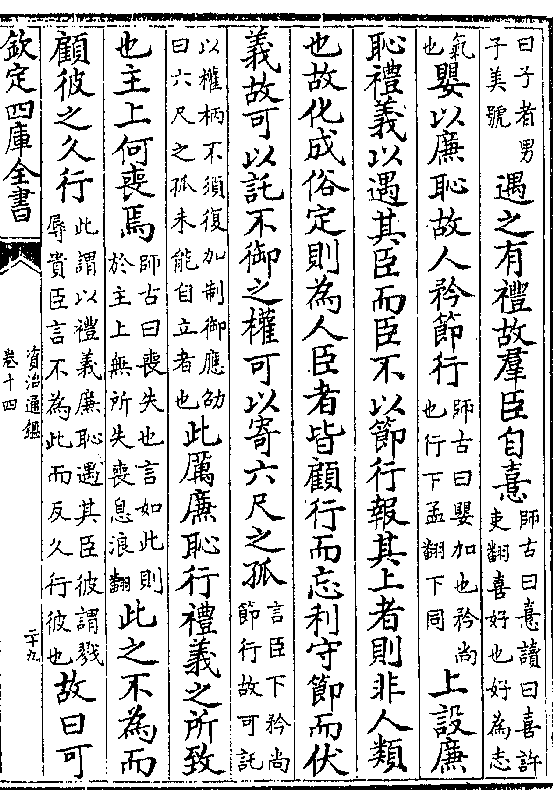 曰子者男子美號遇之有禮故羣臣自憙師古曰憙讀曰喜許吏翻喜好也好為志
氣也嬰以廉恥故人矜節行師古曰嬰加也矜尚也行下孟翻下同上設廉
恥禮義以遇其臣而臣不以節行報其上者則非人類
也故化成俗定則為人臣者皆顧行而忘利守節而伏
義故可以託不御之權可以寄六尺之孤言臣下矜尚節行故可託
以權柄不須復加制御應劭曰六尺之孤未能自立者也此厲廉恥行禮義之所致
也主上何喪焉師古曰喪失也言如此則於主上無所失喪息浪翻此之不為而
顧彼之久行此謂以禮義廉恥遇其臣彼謂戮辱貴臣言不為此而反久行彼也故曰可
欽定四庫全書
資治通鑑
卷十四
二十九